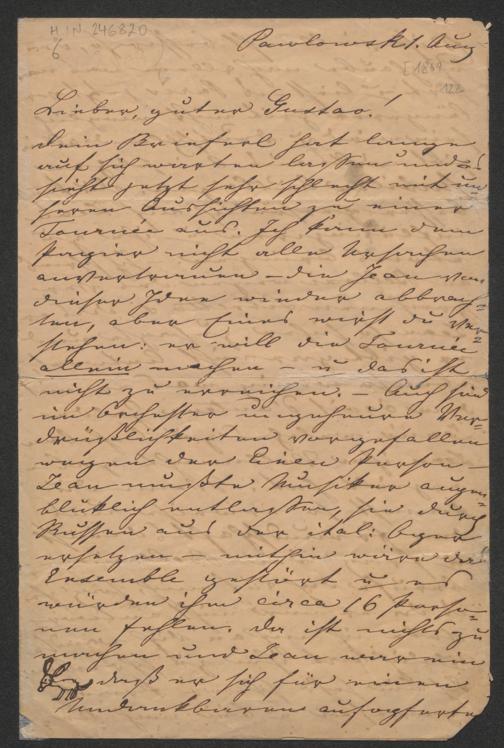 H.I.N. 246820
6
Pawlowsk 1. Aug
[1869
122
Lieber, guter Gustav!
Dein Brieferl hat lange
auf sich warten lassen und es
sieht jetzt sehr schlecht mit un
seren Aussichten zu einer
Tournée aus. Ich kann dem
Papier nicht alle Ursachen
anvertrauen – die Jean von
dieser Idee wieder abbrach-
ten, aber Eines wirst du ver-
stehen: er will die Tournée
allein machen – u das ist
nicht zu erreichen. – Auch sind
im Orchester ungeheure Ver-
drüßlichkeiten vorgefallen
wegen der Einen Person –
Jean mußte Musiker augen-
blicklich entlassen, sie durch
Russen aus der ital: Oper
ersetzen – mithin wäre das
Ensemble gestört u es
würden ihm circa 16 Perso-
nen fehlen. Da ist nichts zu
machen und Jean war ein
daß er sich für einen
Undankbaren aufopferte